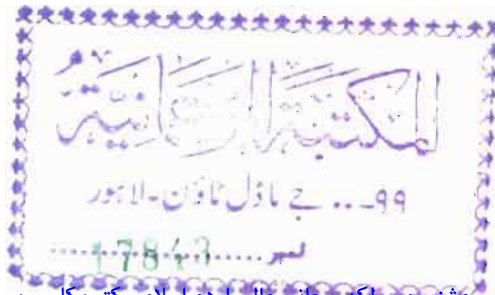 المکتبۃ الرحمانیۃ
۹۹۔.. جے ماڈل ٹاؤن۔لاہور
نمبر.....17843.....